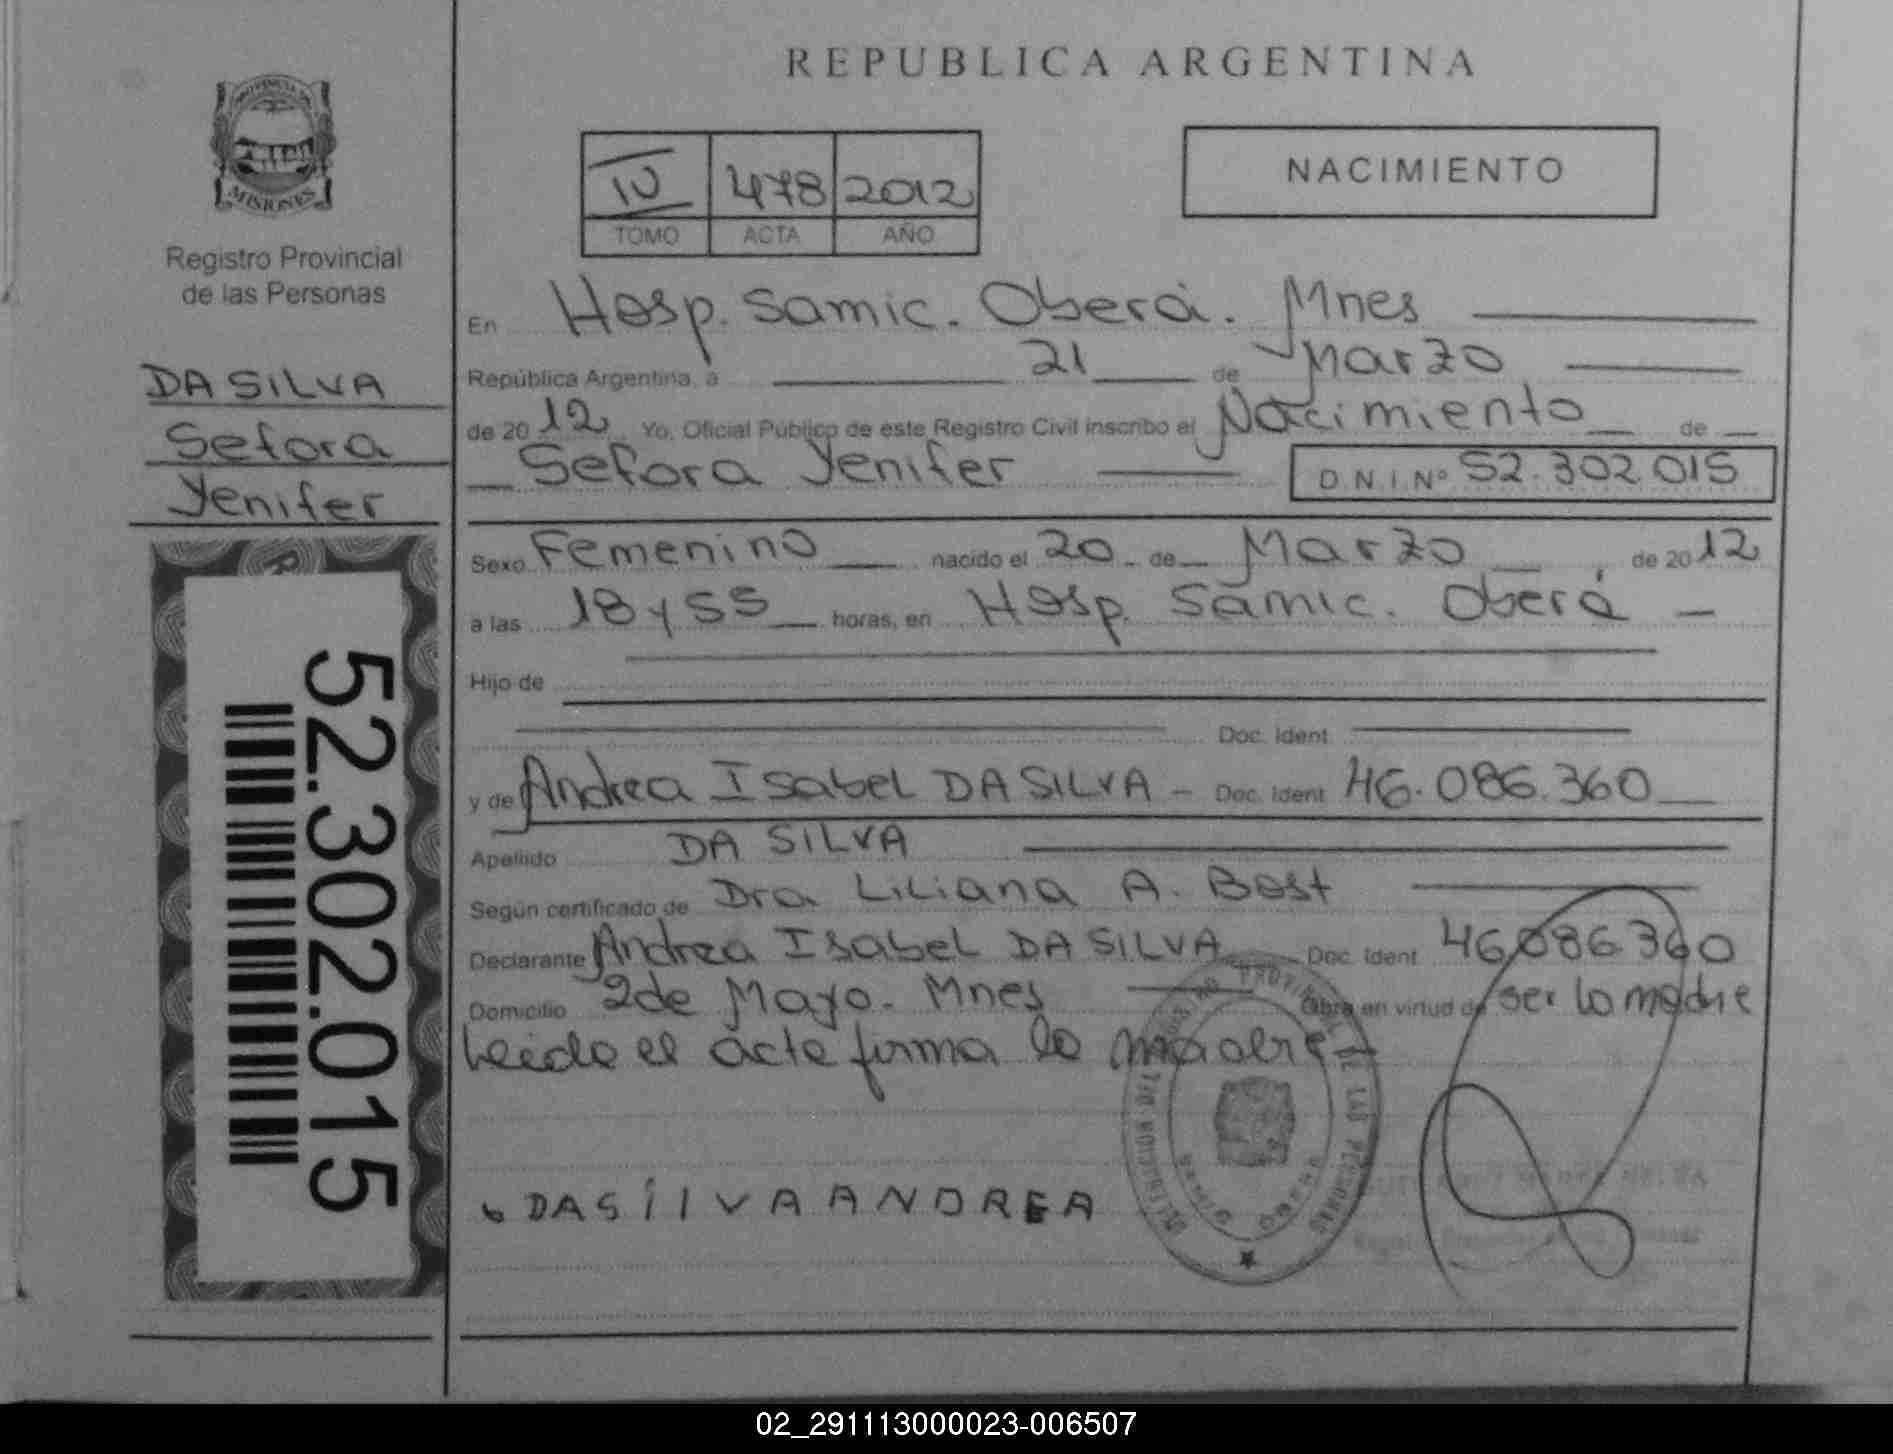 PROVINCIA DE
MISIONES
Registro Provincial
de las Personas
DA SILVA
Sefora
Yenifer
52.302.015
REPUBLICA ARGENTINA
IV 478 2012
TOMO ACTA AÑO
NACIMIENTO
En Hosp. Samic. Oberá. Mnes
República Argentina, a 21 de Marzo
de 2012 Yo, Oficial Público de este Registro Civil inscribo el Nacimiento de
Sefora Yenifer D.N.I.Nº 52.302.015
Sexo Femenino nacido el 20 de Marzo de 2012
a las 18 y 55 horas, en Hosp. Samic. Oberá
Hijo de
Doc. Ident.
y de Andrea Isabel DA SILVA - Doc. Ident. 46.086.360
Apellido DA SILVA
Según certificado de Dra Liliana A. Bost
Declarante Andrea Isabel DA SILVA Doc. Ident. 46.086.360
Domicilio 2 de Mayo. Mnes Obra en virtud de ser la madre
Leida el acta firma la madre
DELEGACION DEL REGISTRO PROVINCIAL DE LAS PERSONAS
DASIIVA ANDREA
02_291113000023-006507